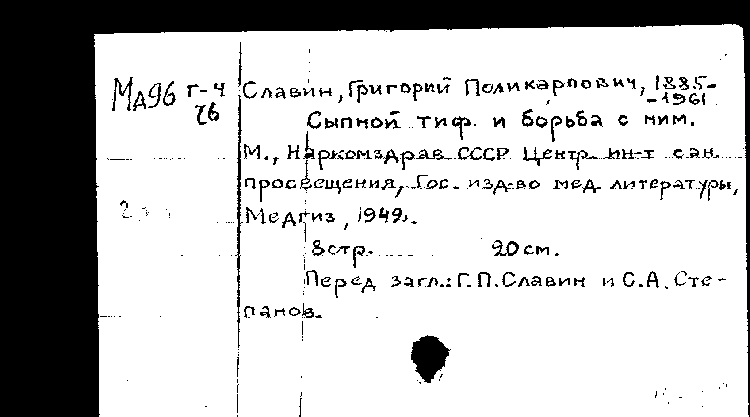 Ма96 Г-4
76
Славин, Григорий Поликарпович, 1885-
-1961
Сыпной тиф и борьба с ним.
М., Наркомздрав СССР Центр. ин-т сан.
просвещения, Гос. изд-во мед. литературы,
Медгиз, 1942.
8 стр. 20 см.
Перед загл.: Г.П. Славин и С.А. Сте-
панов.